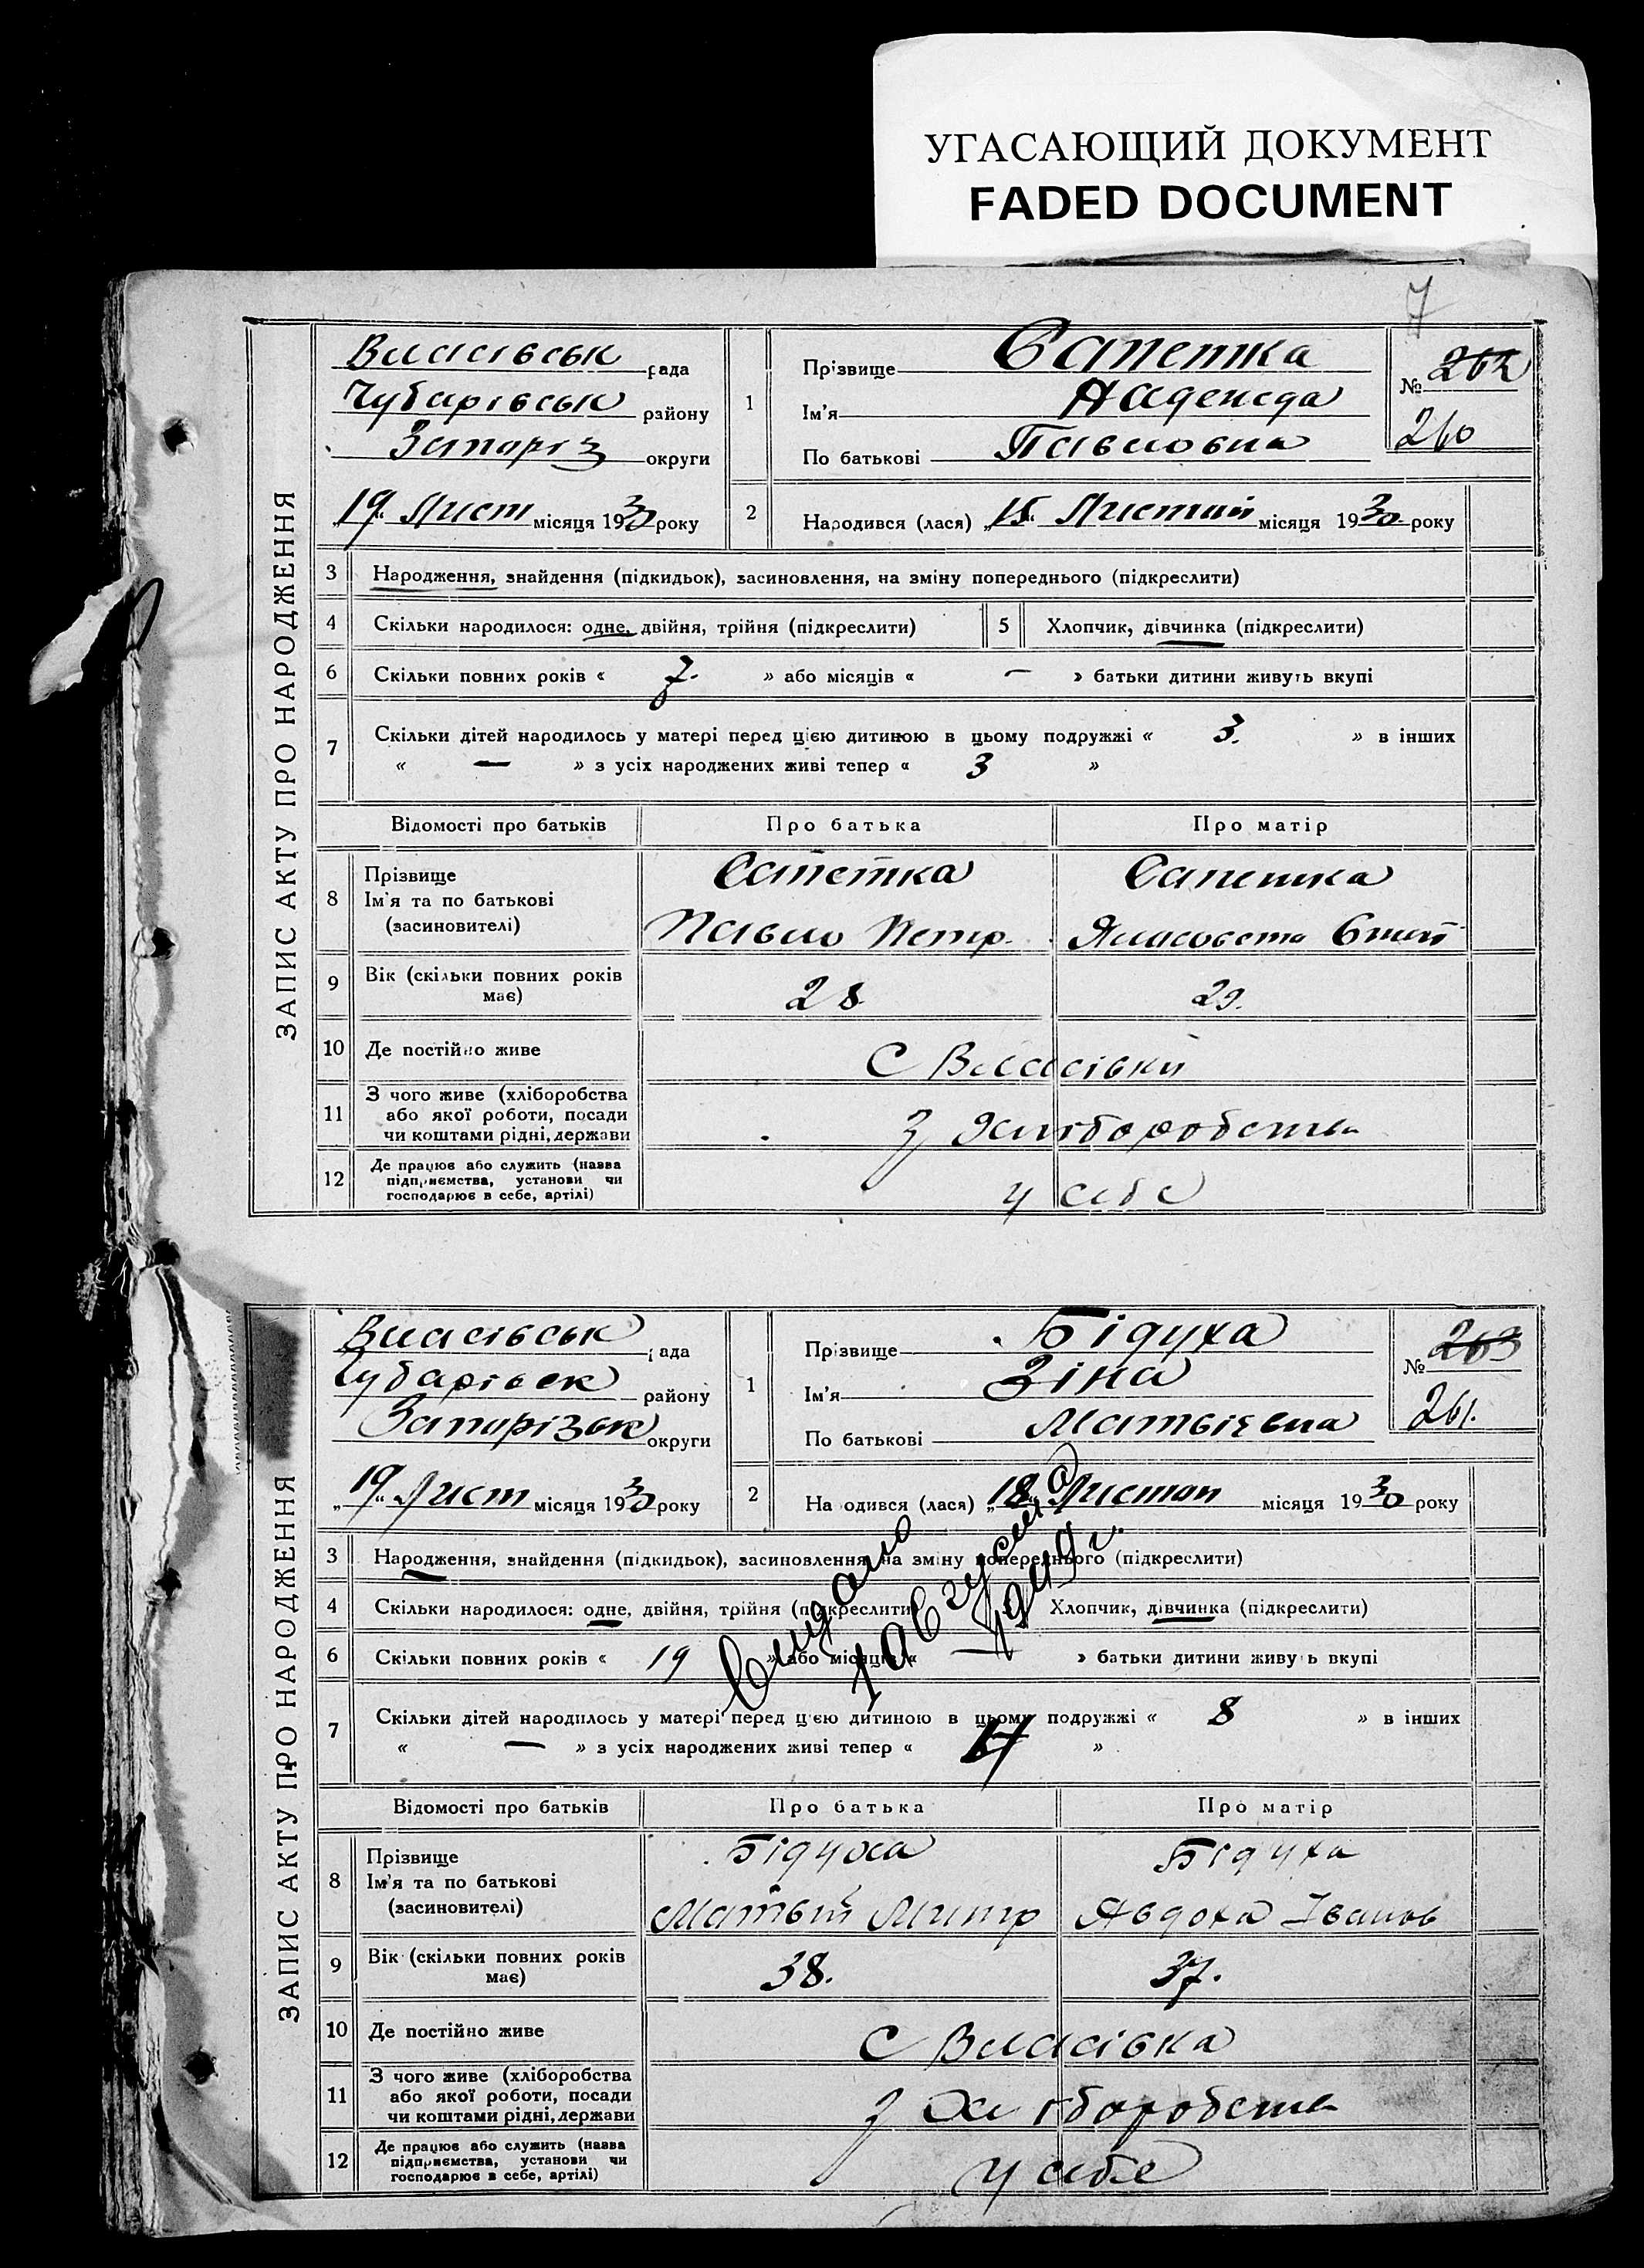 УГАСАЮЩИЙ ДОКУМЕНТ
FADED DOCUMENT
7
ЗАПИС АКТУ ПРО НАРОДЖЕННЯ
Власівськ рада
Чубарівськ району
Запоріз округи
„19“ Лист місяця 1930 року
1 Прізвище Сапетка
Ім'я Надежда
По батькові Павловна
№ 262
260
2 Народився (лася) „15“ Листпий місяця 1930 року
3 Народження, знайдення (підкидьок), засиновлення, на зміну попереднього (підкреслити)
4 Скільки народилося: одне, двійня, трійня (підкреслити) 5 Хлопчик, дівчинка (підкреслити)
6 Скільки повних років « 7. » або місяців « – » батьки дитини живуть вкупі
7 Скільки дітей народилось у матері перед цією дитиною в цьому подружжі « 3. » в інших
« — » з усіх народжених живі тепер « 3 »
Відомості про батьків Про батька Про матір
8 Прізвище
Ім'я та по батькові
(засиновителі)
Сапетка Сапетка
Павло Петр.
9 Вік (скільки повних років
має) 28 29.
10 Де постійно живе С Власівки
11 З чого живе (хліборобства
або якої роботи, посади
чи коштами рідні, держави
З Хліборобства
12 Де працює або служить (назва
підприємства, установи чи
господарює в себе, артілі)
у себе
ЗАПИС АКТУ ПРО НАРОДЖЕННЯ
Власівськ рада
Чубарівск району
Запорізьк округи
„19“ Лист місяця 1930 року
1 Прізвище Бідуха
Ім'я Зіна
По батькові Матвієвна
№ 263
261.
2 Народився (лася) „18“ Листоп місяця 1930 року
3 Народження, знайдення (підкидьок), засиновлення, на зміну попереднього (підкреслити)
4 Скільки народилося: одне, двійня, трійня (підкреслити) Хлопчик, дівчинка (підкреслити)
6 Скільки повних років « 19 » або місяців « » батьки дитини живуть вкупі
Видано
1 августа
1949 г.
7 Скільки дітей народилось у матері перед цією дитиною в цьому подружжі « 8 » в інших
« — » з усіх народжених живі тепер « »
Відомості про батьків Про батька Про матір
8 Прізвище
Ім'я та по батькові
(засиновителі)
Бідуха Бідуха
Матвій Митр Явдоха Іванов
9 Вік (скільки повних років
має) 38. 37.
10 Де постійно живе С Власівка
11 З чого живе (хліборобства
або якої роботи, посади
чи коштами рідні, держави
З Хліборобства
12 Де працює або служить (назва
підприємства, установи чи
господарює в себе, артілі)
у себе